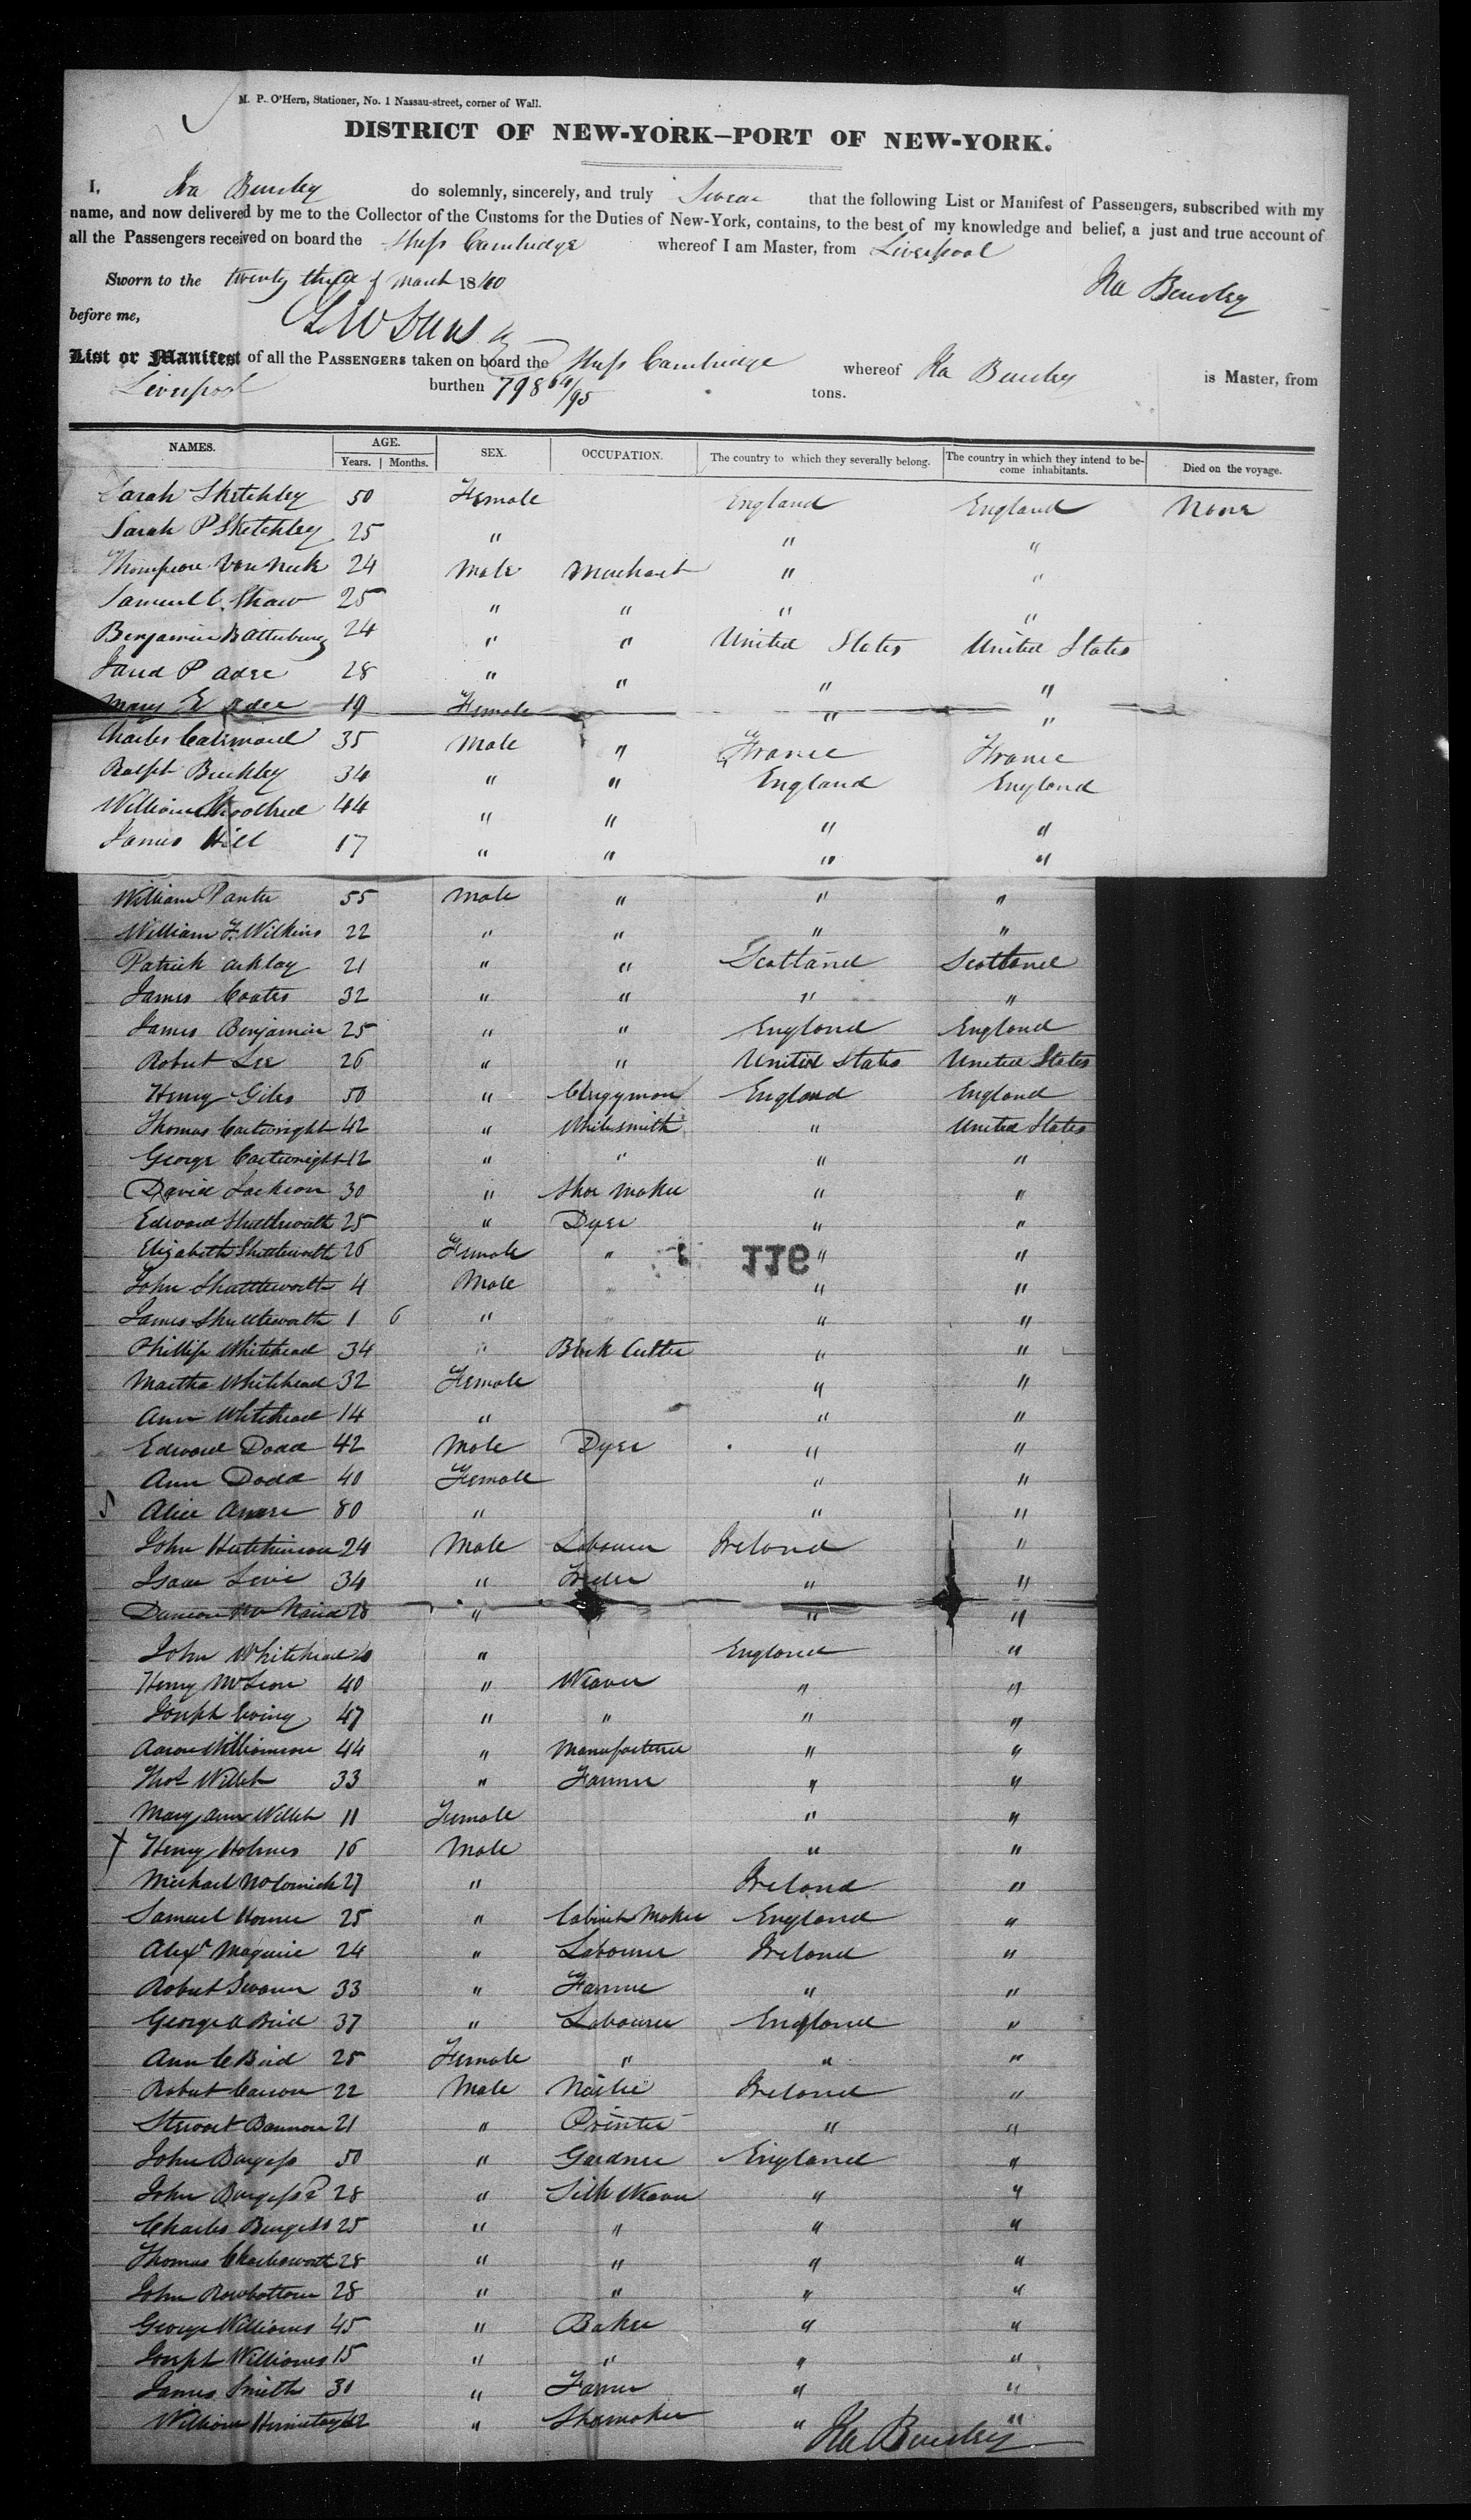 M. P. O'Hern, Stationer, No. 1 Nassau-street, corner of Wall.
DISTRICT OF NEW-YORK—PORT OF NEW-YORK.
I, Ira Bursley do solemnly, sincerely, and truly Swear that the following List or Manifest of Passengers, subscribed with my
name, and now delivered by me to the Collector of the Customs for the Duties of New-York, contains, to the best of my knowledge and belief, a just and true account of
all the Passengers received on board the Ship Cambridge whereof I am Master, from Liverpool
Sworn to the twenty third of March 1840
Ira Bursley
before me,
List or Manifest of all the PASSENGERS taken on board the Ship Cambridge whereof Ira Bursley is Master, from
Liverpool burthen 798 64/95 tons.
NAMES. AGE. SEX. OCCUPATION. The country to which they severally belong. The country in which they intend to become inhabitants. Died on the voyage.
Years. Months.
Sarah Sketchley 50 Female England England None
Sarah P Sketchley 25 " " "
Thompson 24 Male Merchant " "
Samuel C. Shaw 25 " " " "
Benjamin B Atterbury 24 " " United States United States
P Adee 28 " " " "
Mary E Adee 19 Female " "
Charles 35 Male " France France
Ralph Buckley 34 " " England England
William 44 " " " "
James Hill 17 " " " "
William Panter 55 Male " " "
William F. Wilkins 22 " " " "
Patrick Arklay 21 " " Scotland Scotland
James Coates 32 " " " "
James Benjamin 25 " " England England
Robert Lee 26 " " United States United States
Henry Giles 50 " Clergyman England England
Thomas Cartwright 42 " Whitesmith " United States
George Cartwright 12 " " " "
David Jackson 30 " Shoe Maker " "
Edward Shuttleworth 25 " Dyer " "
Elizabeth Shuttleworth 26 Female " " "
116
John Shuttleworth 4 Male " "
James Shuttleworth 1 6 " " "
Phillip Whitehead 34 " Block Cutter " "
Martha Whitehead 32 Female " "
Ann Whitehead 14 " " "
Edward Dodd 42 Male Dyer " "
Ann Dodd 40 Female " "
Alice 80 " " "
John Hutchinson 24 Male Labourer Ireland "
Isaac Levi 34 " " "
Duncan 28 " " "
John Whitehead " England "
Henry McLean 40 " Weaver " "
Joseph 47 " " " "
Aaron Williamson 44 " Manufacturer " "
Thos Willet 33 " Farmer " "
Mary Ann Willet 11 Female " "
Henry Holmes 16 Male " "
Michael McCormick 27 " Ireland "
Samuel 25 " Cabinet Maker England "
Alexr Maguire 24 " Labourer Ireland "
Robert 33 " Farmer " "
George A Bird 37 " Labourer England "
Ann C Bird 25 Female " " "
Robert 22 Male Nailer Ireland "
Stewart Bannon 21 " Printer " "
John Burgess 50 " Gardner England "
John Burgess 2d 28 " Silk Weaver " "
Charles Burgess 25 " " " "
Thomas Charlesworth 28 " " " "
John Rowbottom 28 " " " "
George Williams 45 " Baker " "
Joseph Williams 15 " " " "
James Smith 30 " Farmer " "
William 42 " Shoemaker " "
Ira Bursley